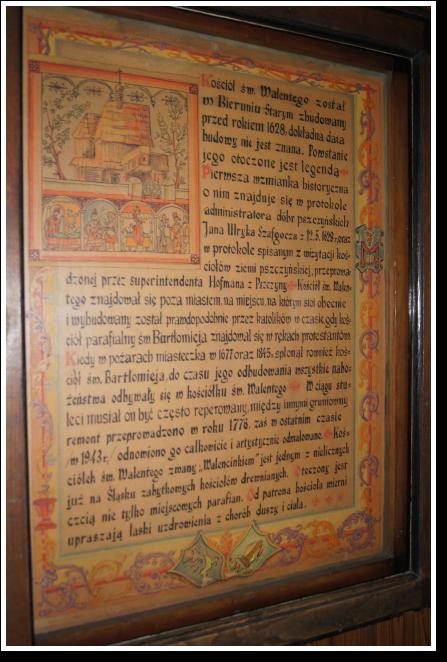 Kościół św. Walentego został
w Bieruniu Starym zbudowany
przed rokiem 1628, dokładna data
budowy nie jest znana. Powstanie
jego otoczone jest legendą
Pierwsza wzmianka historyczna
o nim znajduje się w protokole
administratora dóbr pszczyńskich
Jana Ulryka Szafgocza z 12.5.1628 r, oraz
w protokole spisanym z wizytacji koś-
ciołów ziemi pszczyńskiej, przeprowa
dzonej przez superintendenta Hofmana z Pszczyny Kościół św. Walen-
tego znajdował się poza miastem, na miejscu, na którym stoi obecnie
i wybudowany został prawdopodobnie przez katolików w czasie, gdy koś-
ciół parafialny św. Bartłomieja znajdował się w rękach protestantów
Kiedy w pożarach miasteczka w 1677 oraz 1845 r. spłonął również koś-
ciół św. Bartłomieja, do czasu jego odbudowania wszystkie nabo-
żeństwa odbywały się w kościółku św. Walentego W ciągu stu-
leci musiał on być często reperowany, między innymi gruntowny
remont przeprowadzono w roku 1776, zaś w ostatnim czasie
/w 1943 r./ odnowiono go całkowicie i artystycznie odmalowano. Koś-
ciółek św. Walentego zwany „Walencinkiem" jest jednym z nielicznych
już na Śląsku zabytkowych kościołów drewnianych. Otoczony jest
czcią nie tylko miejscowych parafian. Od patrona kościoła wierni
upraszają łaski uzdrowienia z chorób duszy i ciała.